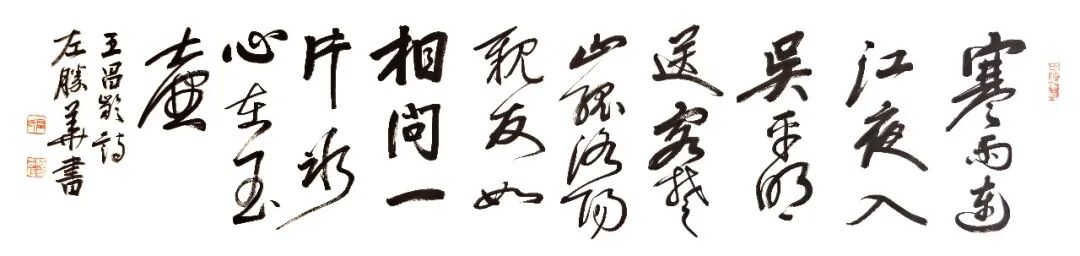 寒雨连
江夜入
吴平明
送客楚
山孤洛阳
亲友如
相问一
片冰
心在玉
壶
王昌龄诗
左胜华书